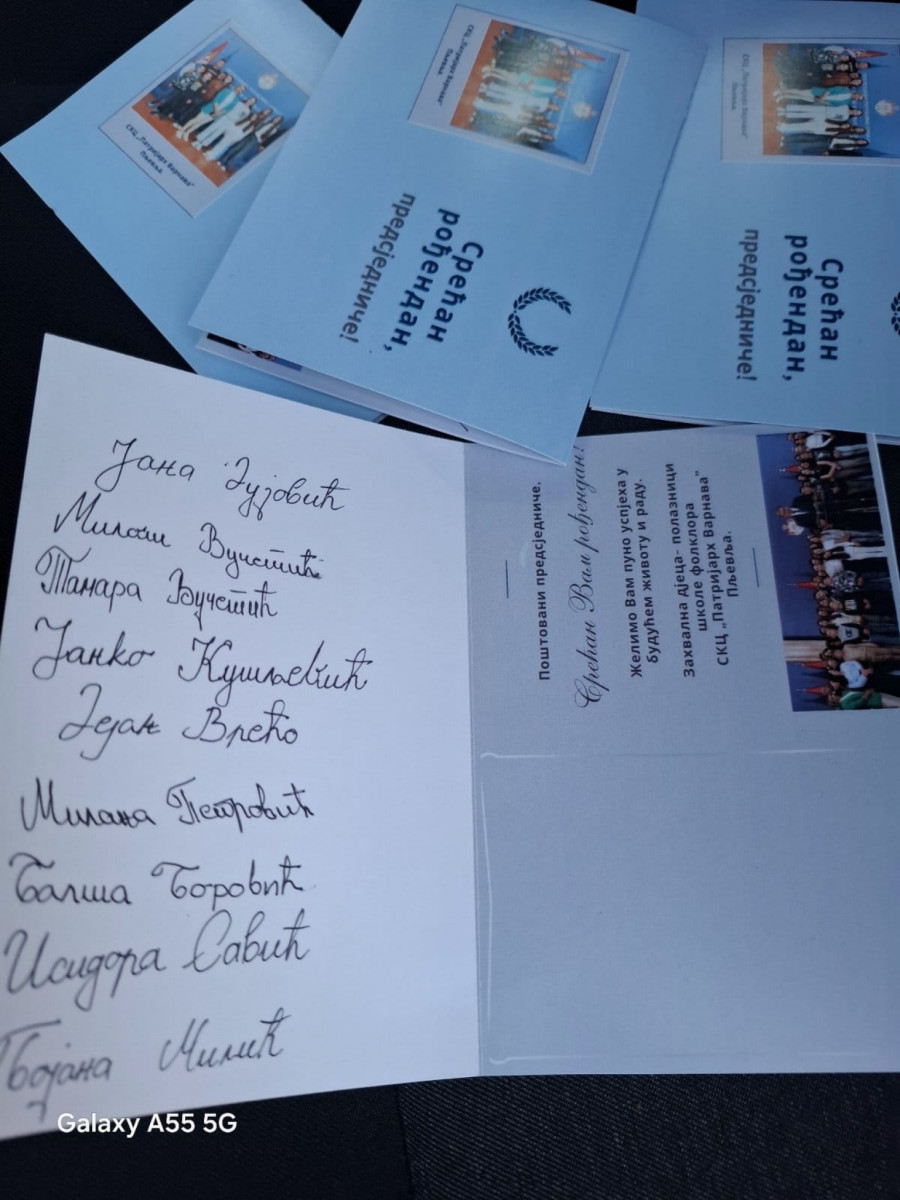 СКЦ „Патријарх Варнава"
Пљевља
Срећан
рођендан,
предсједниче!
СКЦ „Патријарх Варнава"
Пљевља
Срећан
рођендан,
предсједниче!
СКЦ „Патријарх Варнава"
Пљевља
Јана Зујовић
Милош Вучетић
Тамара Вучетић
Јанко Кушљевић
Дејан Врећо
Милана Петровић
Балша Боровић
Исидора Савић
Бојана Милић
Поштовани предсједниче.
Срећан Вам рођендан!
Желимо Вам пуно успјеха у
будућем животу и раду.
Захвална дјеца- полазници
школе фолклора
СКЦ „Патријарх Варнава"
Пљевља.
Galaxy A55 5G